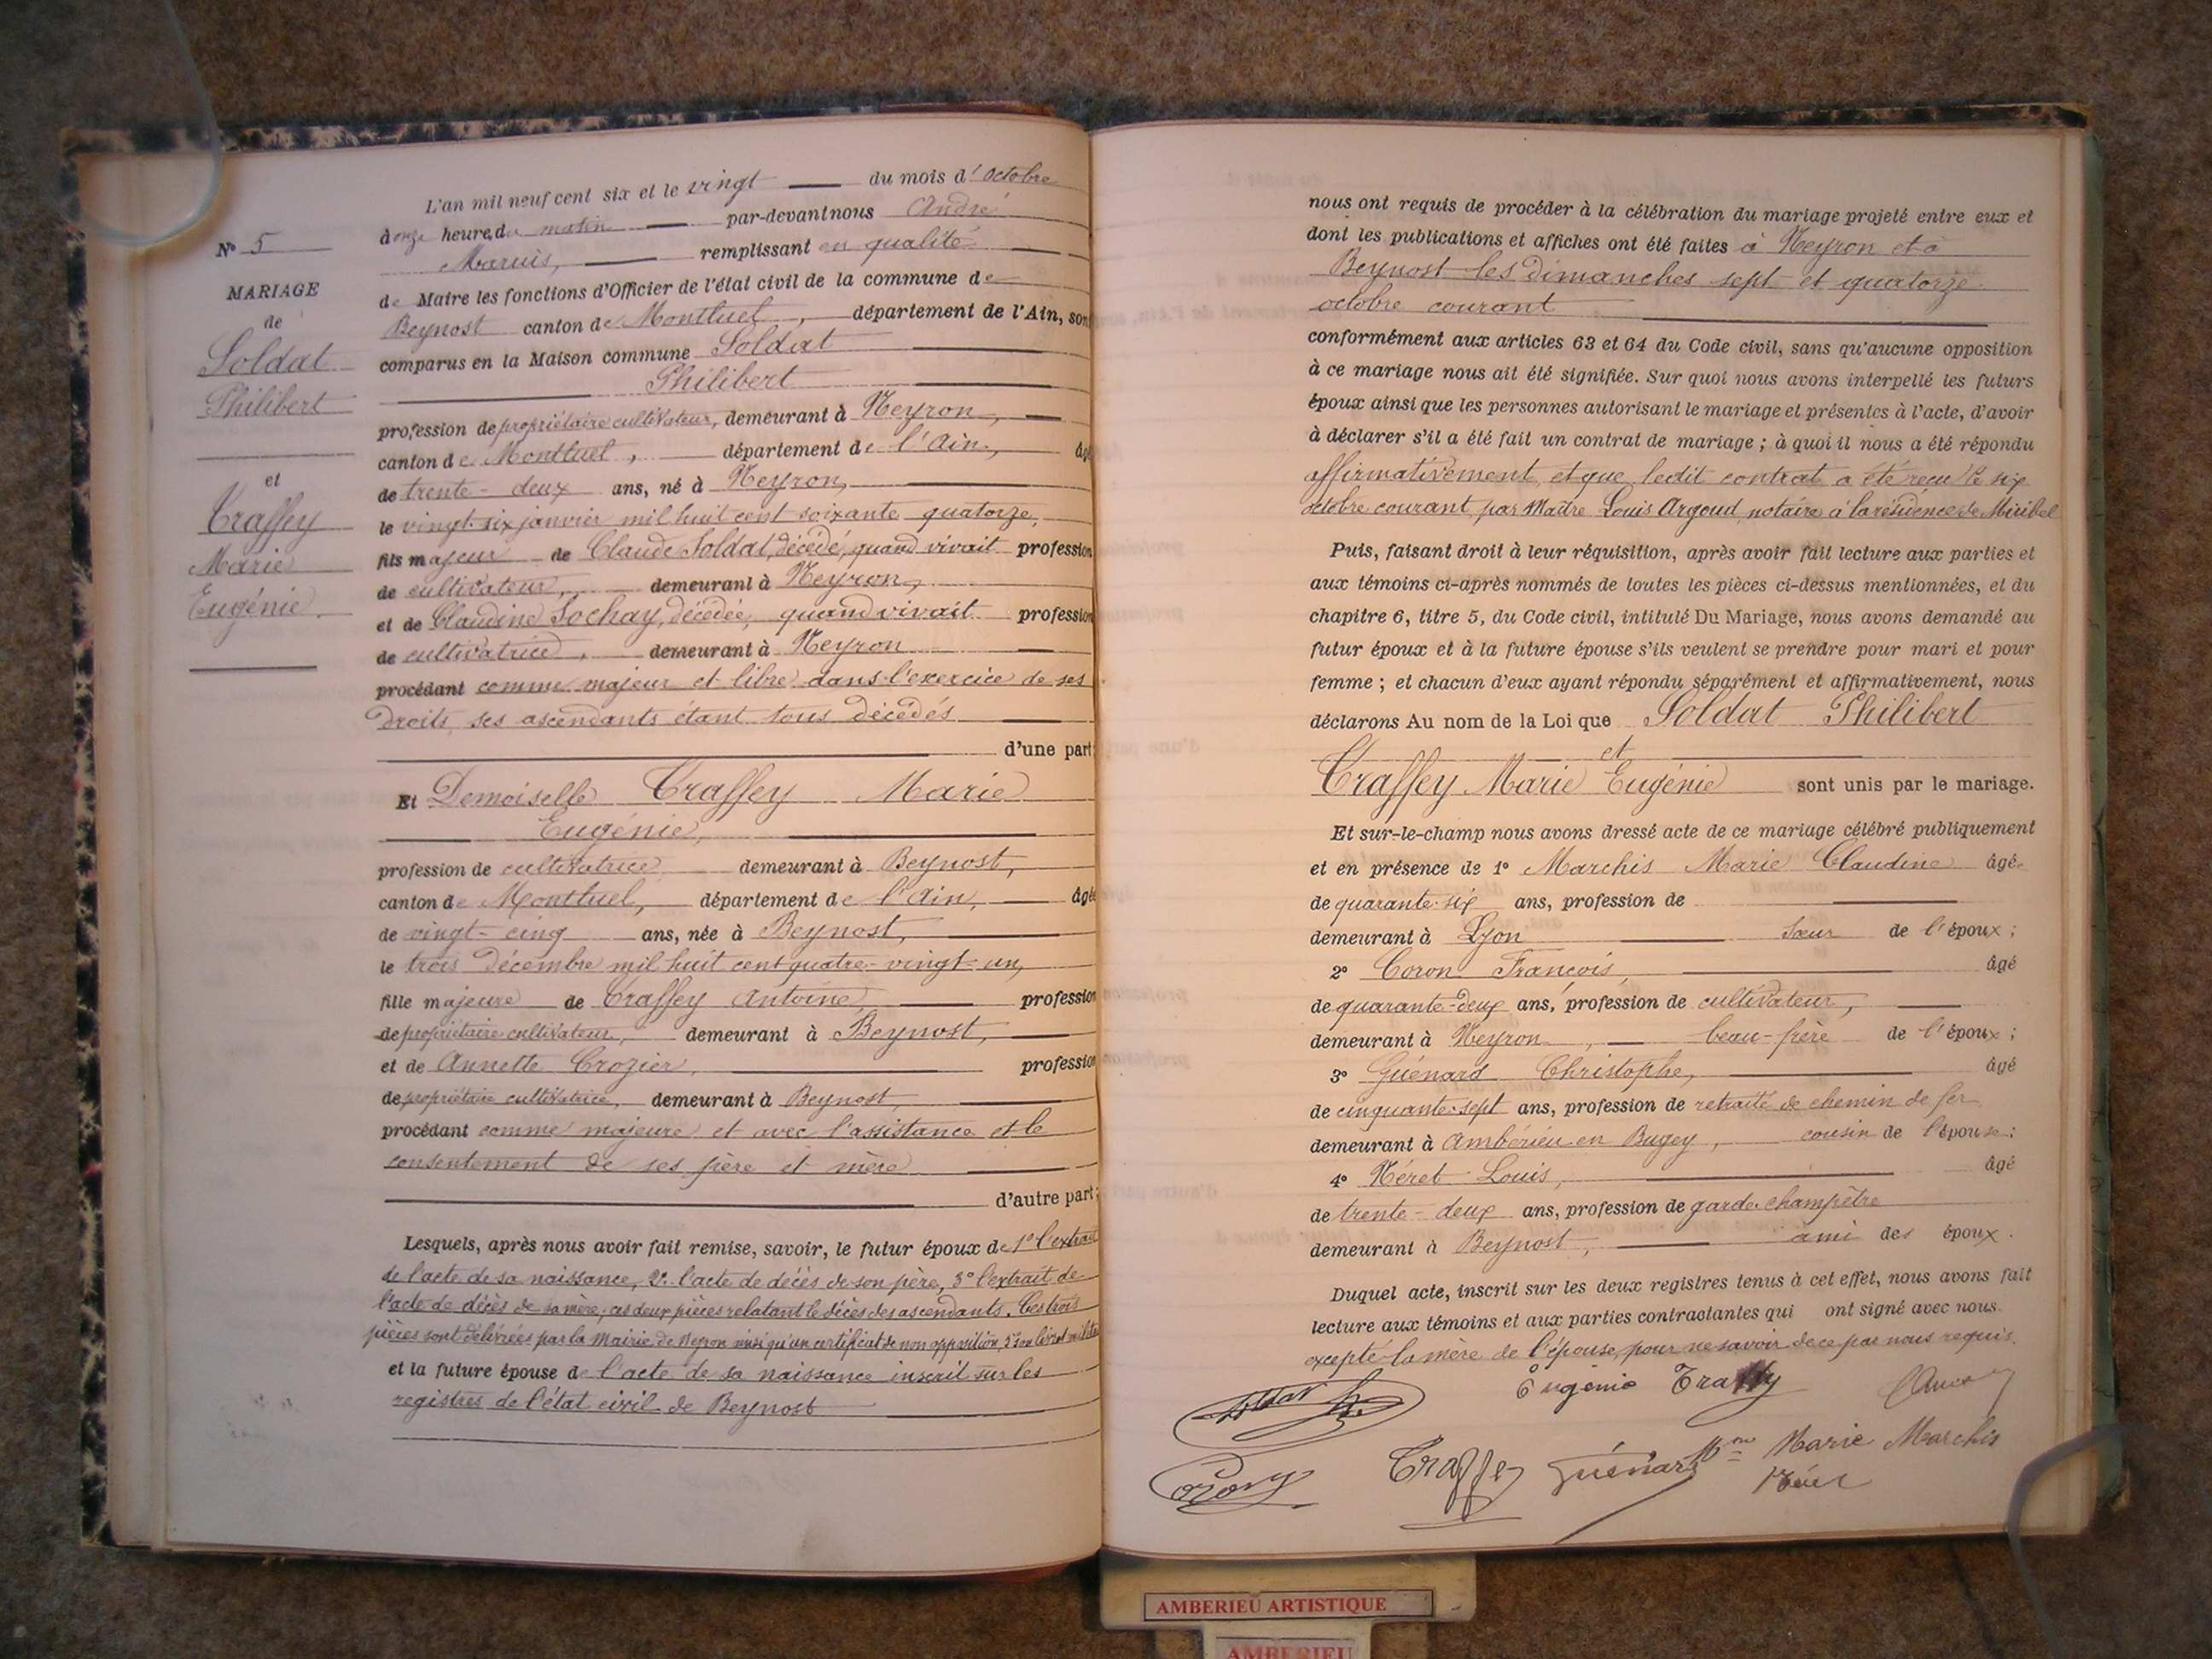 L'an mil neuf cent six et le vingt du mois d'octobre
à onze heure du matin par-devant nous André
Marius, remplissant en qualité
de Maire les fonctions d'Officier de l'état civil de la commune de
Beynost canton de Montluel, département de l'Ain, son
comparus en la Maison commune Soldat
Philibert
profession de propriétaire cultivateur, demeurant à Neyron,
canton de Montluel, département de l'Ain, âgé
de trente-deux ans, né à Neyron,
le vingt-six janvier mil huit cent soixante quatorze,
fils majeur de Claude Soldat, décédé, quand vivait profession
de cultivateur, demeurant à Neyron,
et de Claudine Sochay, décédée, quand vivait profession
de cultivatrice, demeurant à Neyron
procédant comme majeur et libre dans l'exercice de ses
droits, ses ascendants étant tous décédés
d'une part;
Et Demoiselle Traffey Marie
Eugénie,
profession de cultivatrice demeurant à Beynost,
canton de Montluel, département de l'Ain, âgée
de vingt-cinq ans, née à Beynost,
le trois décembre mil huit cent quatre-vingt-un,
fille majeure de Traffey Antoine, profession
de propriétaire cultivateur, demeurant à Beynost,
et de Annette Crozier, profession
de propriétaire cultivatrice, demeurant à Beynost,
procédant comme majeure et avec l'assistance et le
consentement de ses père et mère
d'autre part;
Lesquels, après nous avoir fait remise, savoir, le futur époux de 1° l'extrait
de l'acte de sa naissance, 2° l'acte de décès de son père, 3° l'extrait de
l'acte de décès de sa mère; ces deux pièces relatant le décès des ascendants. Ces trois
pièces sont délivrées par la Mairie de Neyron ainsi qu'un certificat de non opposition, 5° son livret
et la future épouse de l'acte de sa naissance inscrit sur les
registres de l'état civil de Beynost
N° 5
MARIAGE
de
Soldat
Philibert
et
Traffey
Marie
Eugénie
nous ont requis de procéder à la célébration du mariage projeté entre eux et
dont les publications et affiches ont été faites à Neyron et à
Beynost les dimanches sept et quatorze
octobre courant
conformément aux articles 63 et 64 du Code civil, sans qu'aucune opposition
à ce mariage nous ait été signifiée. Sur quoi nous avons interpellé les futurs
époux ainsi que les personnes autorisant le mariage et présentes à l'acte, d'avoir
à déclarer s'il a été fait un contrat de mariage; à quoi il nous a été répondu
affirmativement, et que ledit contrat a été reçu le six
octobre courant, par Maître Louis Argoud, notaire à la résidence de Miribel
Puis, faisant droit à leur réquisition, après avoir fait lecture aux parties et
aux témoins ci-après nommés de toutes les pièces ci-dessus mentionnées, et du
chapitre 6, titre 5, du Code civil, intitulé Du Mariage, nous avons demandé au
futur époux et à la future épouse s'ils veulent se prendre pour mari et pour
femme; et chacun d'eux ayant répondu séparément et affirmativement, nous
déclarons Au nom de la Loi que Soldat Philibert
et
Traffey Marie Eugénie sont unis par le mariage.
Et sur-le-champ nous avons dressé acte de ce mariage célébré publiquement
et en présence de 1° Marchis Marie Claudine âgée
de quarante-six ans, profession de
demeurant à Lyon sœur de l'époux;
2° Coron François, âgé
de quarante-deux ans, profession de cultivateur,
demeurant à Neyron, beau-frère de l'époux;
3° Guénard Christophe, âgé
de cinquante-sept ans, profession de retraité de chemin de fer
demeurant à Ambérieu en Bugey, cousin de l'épouse;
4° Néret Louis, âgé
de trente-deux ans, profession de garde-champêtre
demeurant à Beynost, ami des époux.
Duquel acte, inscrit sur les deux registres tenus à cet effet, nous avons fait
lecture aux témoins et aux parties contractantes qui ont signé avec nous.
excepté la mère de l'épouse, pour ne savoir de ce par nous requis.
Eugénie Traffy
Marie Marchis
Coron Traffey Guénard
AMBERIEU ARTISTIQUE
AMBERIEU